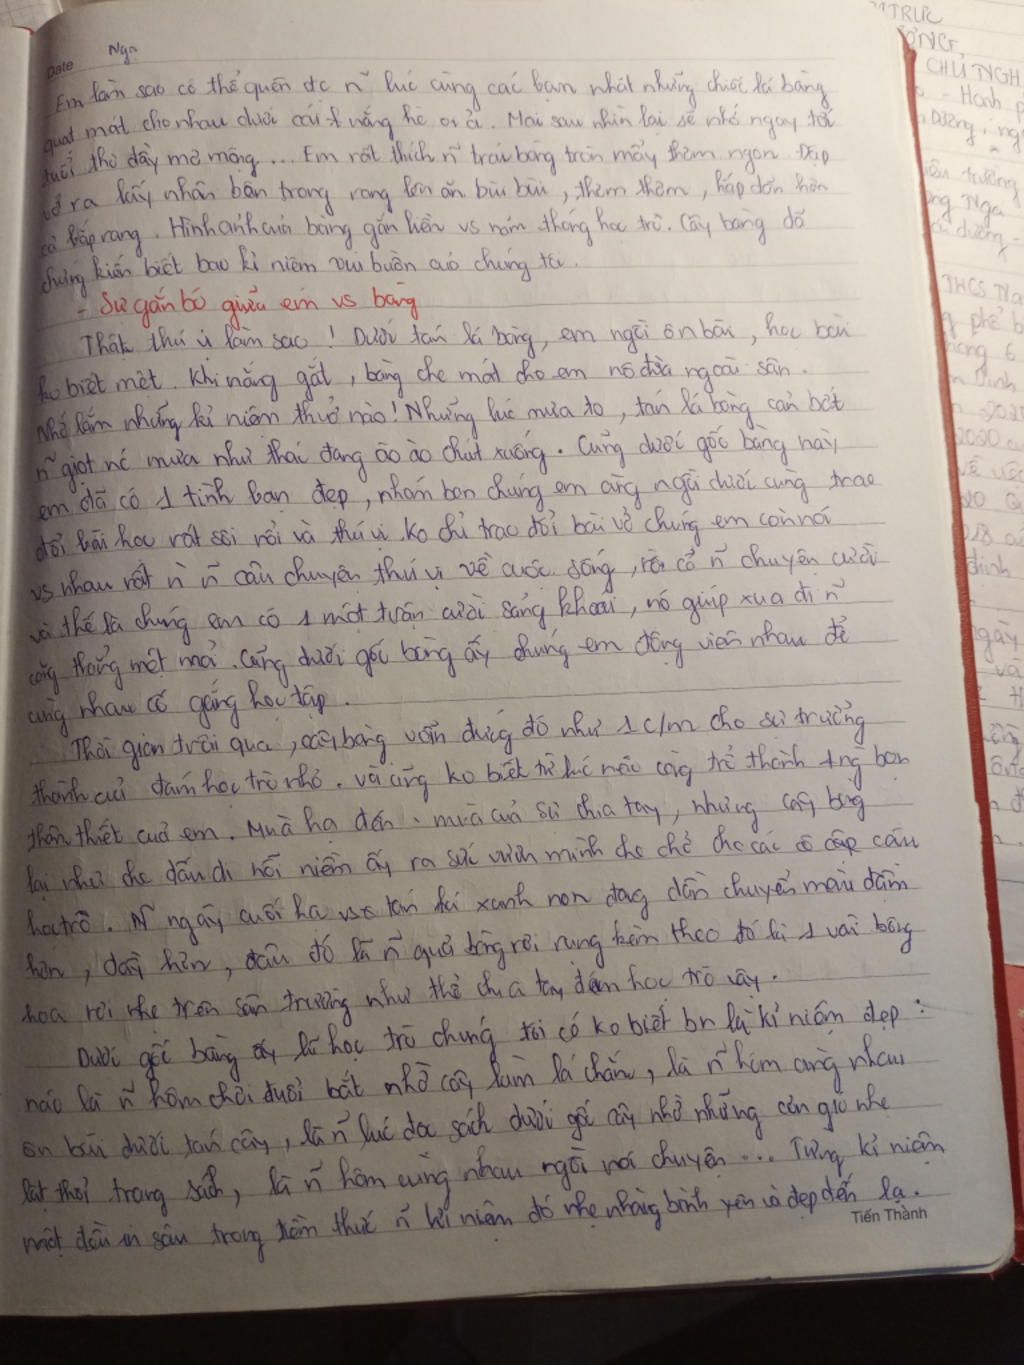 Date Nga
Em làm sao có thể quên đc ñ lúc cùng các bạn nhặt những chiếc lá bàng
quạt mát cho nhau dưới cái nắng hè oi ả. Mai sau nhìn lại sẽ nhớ ngay tới
tuổi thơ đầy mơ mộng... Em rất thích ñ trái bàng tròn mẩy thơm ngon. Đập
vỡ ra lấy nhân bên trong rang lên ăn bùi bùi, thơm thơm, hấp dẫn hơn
cả bắp rang. Hình ảnh cây bàng gắn liền vs năm tháng học trò. Cây bàng đó
chứng kiến biết bao kỉ niệm vui buồn của chúng tôi.
- Sự gắn bó giữa em vs bàng
Thật thú vị làm sao! Dưới tán lá bàng, em ngồi ôn bài, học bài
ko biết mệt. Khi nắng gắt, bàng che mát cho em nô đùa ngoài sân.
Nhớ lắm những kỉ niệm thuở nào! Những lúc mưa to, tán lá bàng cản bớt
ñ giọt nc mưa như thác đang ào ào chút xuống. Cũng dưới gốc bàng này,
em đã có 1 tình bạn đẹp, nhóm bạn chúng em cùng ngồi dưới cùng trao
đổi bài học rất sôi nổi và thú vị. Ko chỉ trao đổi bài vở chúng em còn nói
vs nhau rất ñ ñ câu chuyện thú vị về cuộc sống, rồi cả ñ chuyện cười
và thế là chúng em có 1 một trận cười sảng khoái, nó giúp xua đi ñ
căng thẳng mệt mỏi. Cũng dưới gốc bàng ấy chúng em động viên nhau để
cùng nhau cố gắng học tập.
Thời gian trôi qua, cây bàng vẫn đứng đó như 1 c/m cho sự trưởng
thành củả đám học trò nhỏ. Và cũng ko biết từ lúc nào càng trở thành 1 ng bạn
thân thiết của em. Mùa hạ đến - mùa của sự chia tay, nhưng cây bàng
lại như che dấu đi nỗi niềm ấy ra sức vươn mình che chở cho các cô cậu
học trò. Ñ ngày cuối hạ vs tán lá xanh non đang dần chuyển màu đậm
hơn, dày hơn, đâu đó là ñ quả bàng rơi rụng kèm theo đó là 1 vài bông
hoa rơi nhẹ trên sân trường như thể chia tay đám học trò vậy.
Dưới gốc bàng ấy lũ học trò chúng tôi có ko biết bn là kỉ niệm đẹp:
nào là ñ hôm chơi đuổi bắt nhờ cây làm lá chắn, là ñ hôm cùng nhau
ôn bài dưới tán cây, là ñ lúc đọc sách dưới gốc cây nhờ những cơn gió nhẹ
lật thổi trang sách, là ñ hôm cùng nhau ngồi nói chuyện... Từng kỉ niệm
một đều in sâu trong tiềm thức ñ kỉ niệm đó nhẹ nhàng bình yên và đẹp đến lạ.
Tiến Thành